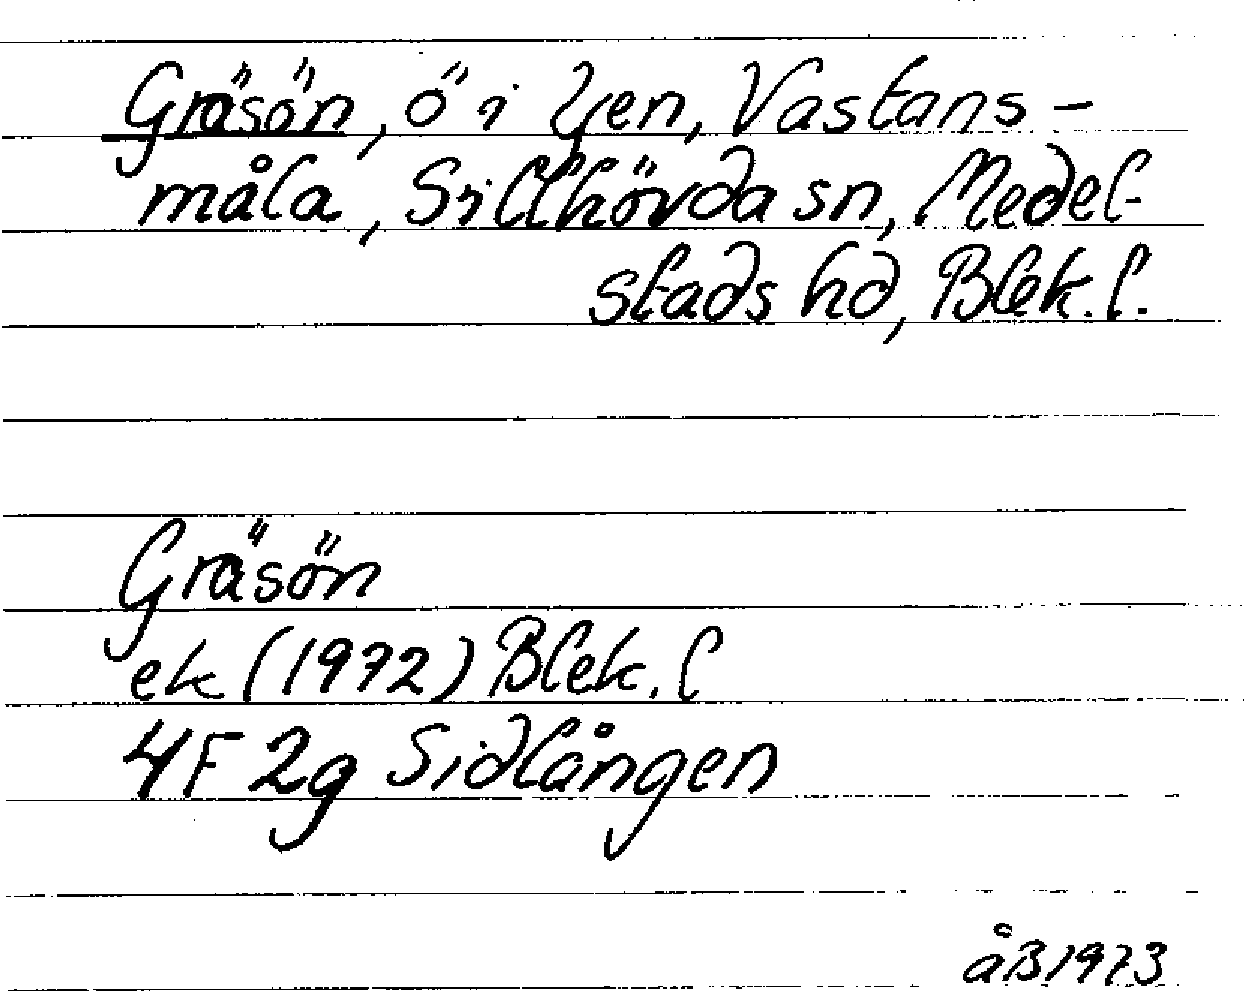 Gräsön, ö i Yen, Vastans-
måla, Sillhövda sn, Medel-
stads hd, Blek. l.
Gräsön
ek (1972) Blek. l
4F 2g Sidlången
åB 1973